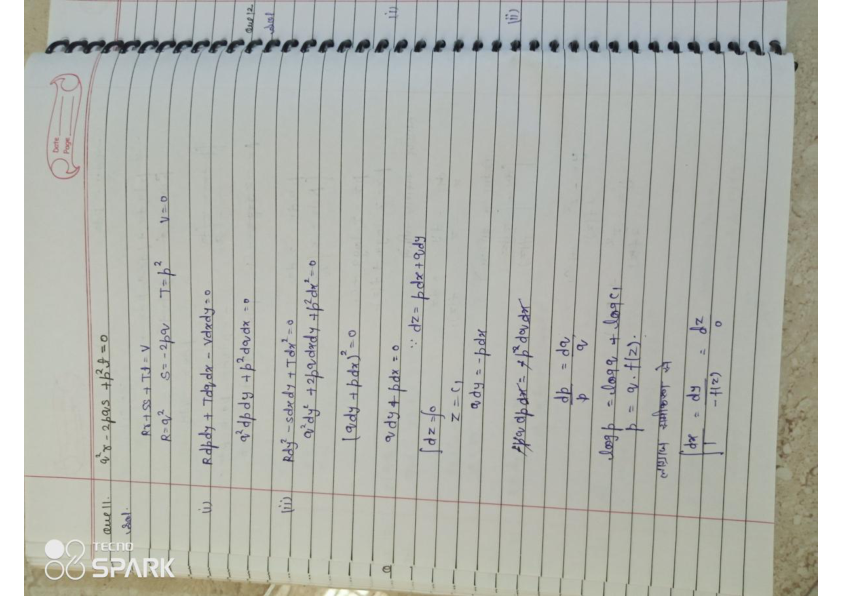 Date
Page
Que 11. q²r - 2pqs + p²t = 0
Rr + Ss + Tt = V
R = q² S = -2pq T = p² V = 0
i) Rdpdy + Tdqdx - Vdxdy = 0
q²dpdy + p²dqdx = 0
(ii) Rdy² - sdxdy + Tdx² = 0
q²dy² + 2pqdxdy + p²dx² = 0
(qdy + pdx)² = 0
qdy + pdx = 0
∫dz = 0 ∵ dz = pdx + qdy
z = c₁
qdy = -pdx
+pq dpdx = +p²dqdx
dp/p = dq/q
log p = log q + log c₁
p = q. f(z).
लग्रांज समीकरण से
∫ dx/1 = dy/-f(z) = dz/0
Que 12
i)
(ii)
TECNO
SPARK